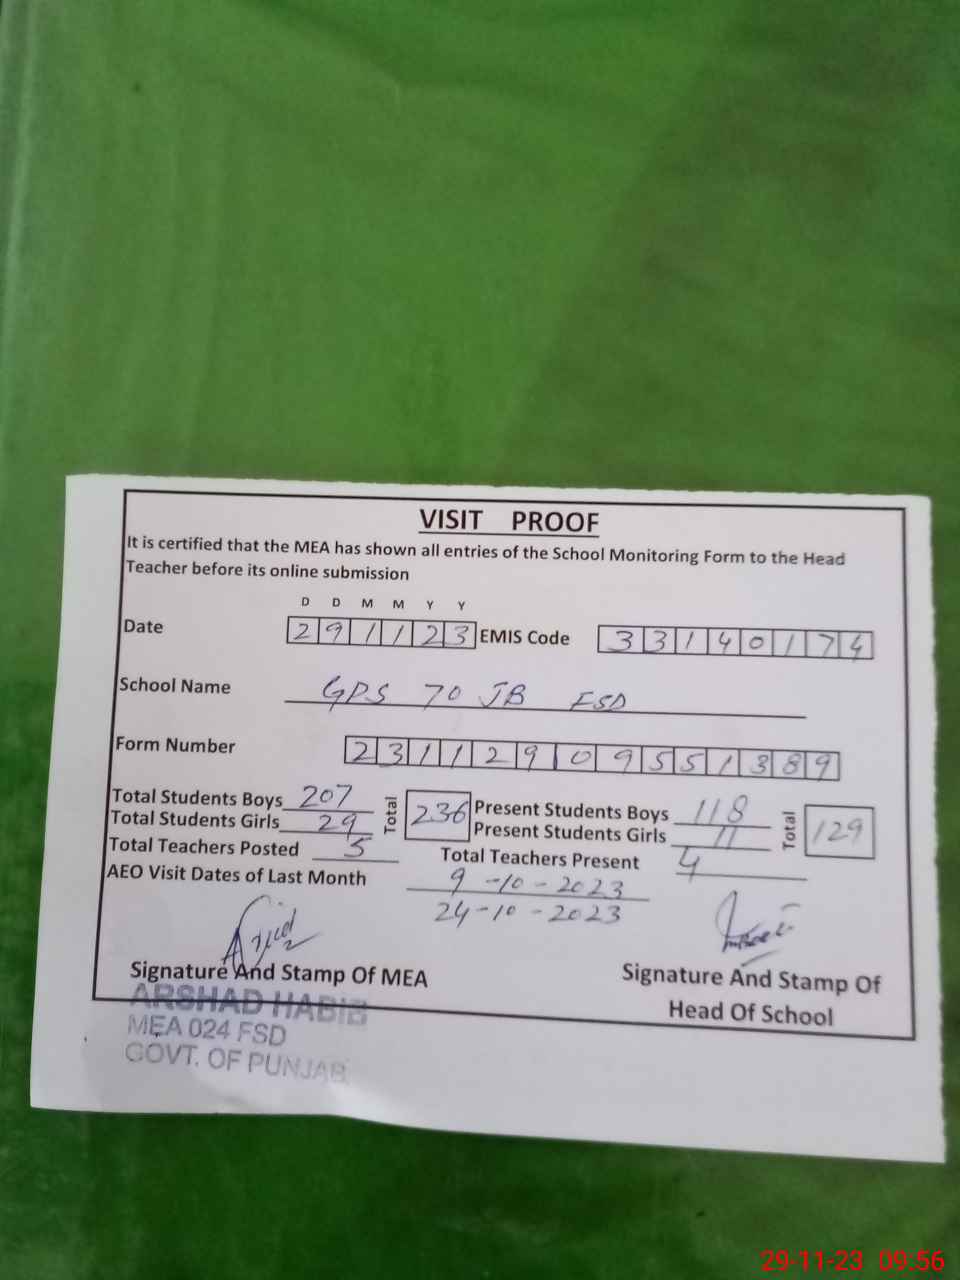 VISIT PROOF
It is certified that the MEA has shown all entries of the School Monitoring Form to the Head
Teacher before its online submission
D D M M Y Y
Date 291123 EMIS Code 33140174
School Name GPS 70 JB FSD
Form Number 23112909551389
Total Students Boys 207 Total 236 Present Students Boys 118 Total 129
Total Students Girls 29 Present Students Girls 11
Total Teachers Posted 5 Total Teachers Present 4
AEO Visit Dates of Last Month 9-10-2023
24-10-2023
Signature And Stamp Of MEA Signature And Stamp Of
Head Of School
ARSHAD HABIB
MEA 024 FSD
GOVT. OF PUNJAB
29-11-23 09:56